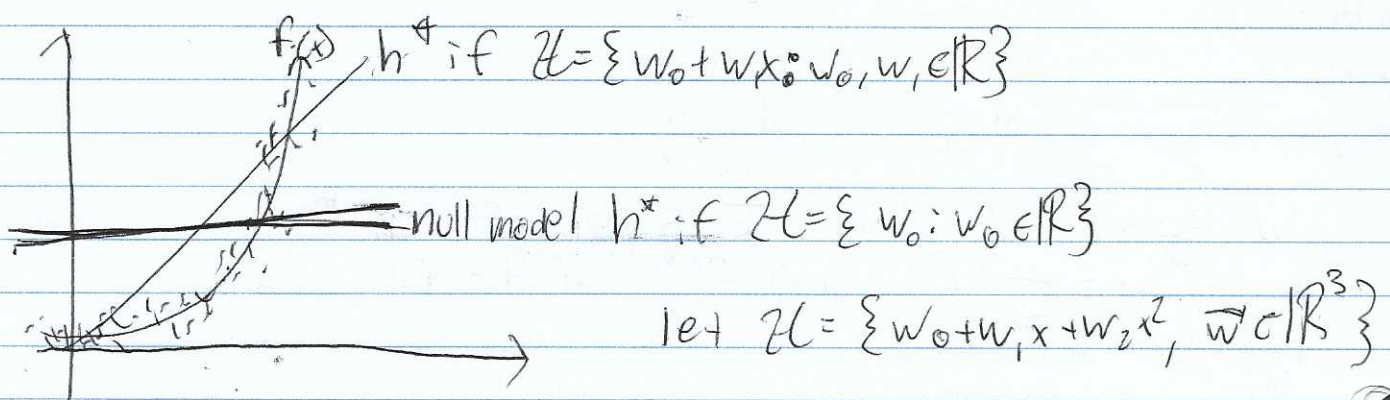 f(x) h* if H = {w₀ + w₁x : w₀, w₁ ∈ ℝ}
null model h* if H = { w₀ : w₀ ∈ ℝ}
let H = {w₀ + w₁x + w₂x², w⃗ ∈ ℝ³}